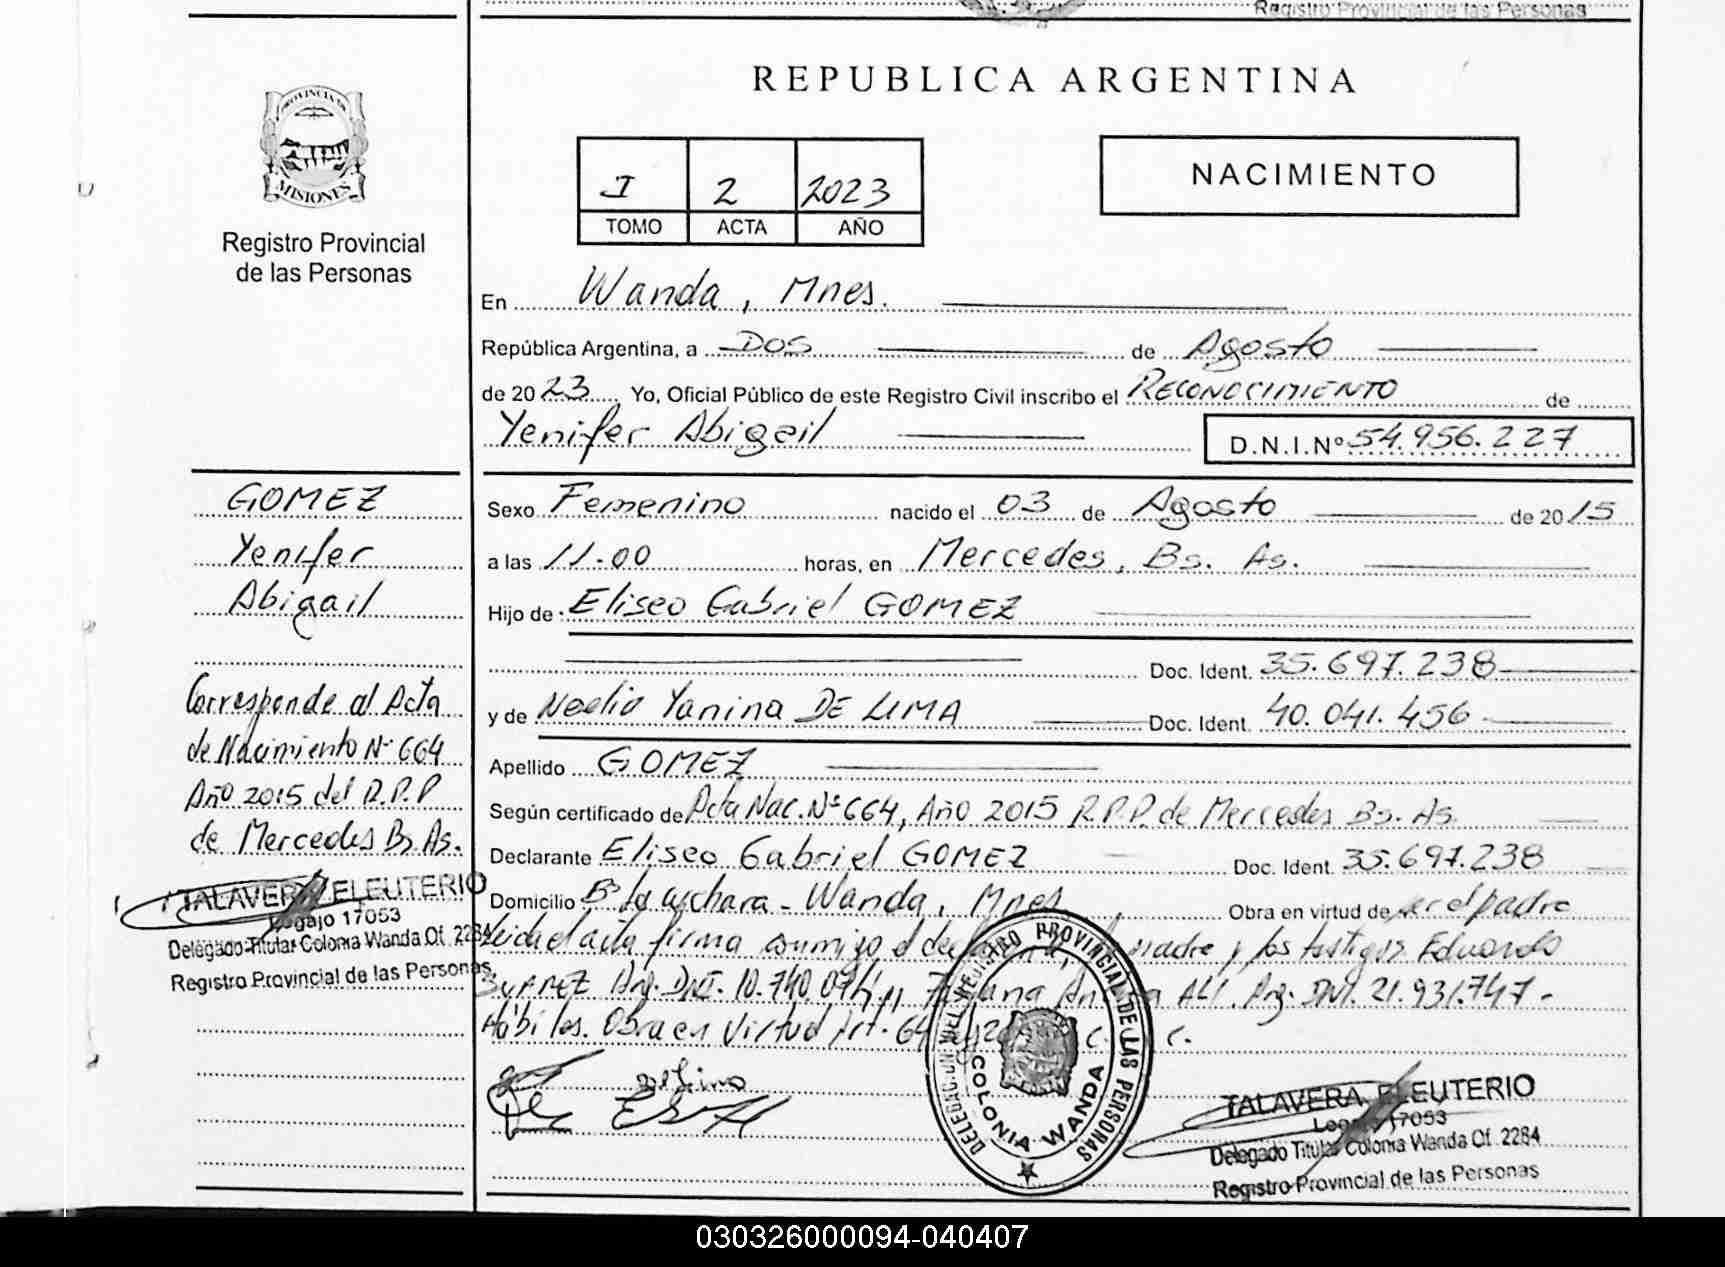 Registro Provincial de las Personas
REPUBLICA ARGENTINA
PROVINCIA DE
MISIONES
Registro Provincial
de las Personas
I 2 2023
TOMO ACTA AÑO
NACIMIENTO
En Wanda, Mnes.
República Argentina, a DOS de Agosto
de 2023 Yo, Oficial Público de este Registro Civil inscribo el RECONOCIMIENTO de
Yenifer Abigail
D.N.I.Nº 54.956.227
GOMEZ
Yenifer
Abigail
Corresponde al Acta
de Nacimiento Nº 664
Año 2015 del R.P.P
de Mercedes Bs. As.
TALAVERA ELEUTERIO
Legajo 17053
Delegado Titular Colonia Wanda Of. 2284
Registro Provincial de las Personas
Sexo Femenino nacido el 03 de Agosto de 2015
a las 11.00 horas, en Mercedes, Bs. As.
Hijo de Eliseo Gabriel GOMEZ
Doc. Ident. 35.697.238
y de Noelia Yanina DE LIMA Doc. Ident. 40.041.456
Apellido GOMEZ
Según certificado de Acta Nac. Nº 664, Año 2015 R.P.P. de Mercedes Bs. As.
Declarante Eliseo Gabriel GOMEZ Doc. Ident. 35.697.238
Domicilio Bº La cuchara - Wanda, Mnes Obra en virtud de ser el padre
Leida el acta firma conmigo el madre y los testigos Eduardo
Arg. DNI. 10.740.074 ALI. Arg. DNI. 21.931.747 -
Hábiles. Obra en virtud Art. 64 C. C.
DELEGACION DEL REGISTRO PROVINCIAL DE LAS PERSONAS
COLONIA WANDA
TALAVERA ELEUTERIO
Legajo 17053
Delegado Titular Colonia Wanda Of. 2284
Registro Provincial de las Personas
030326000094-040407